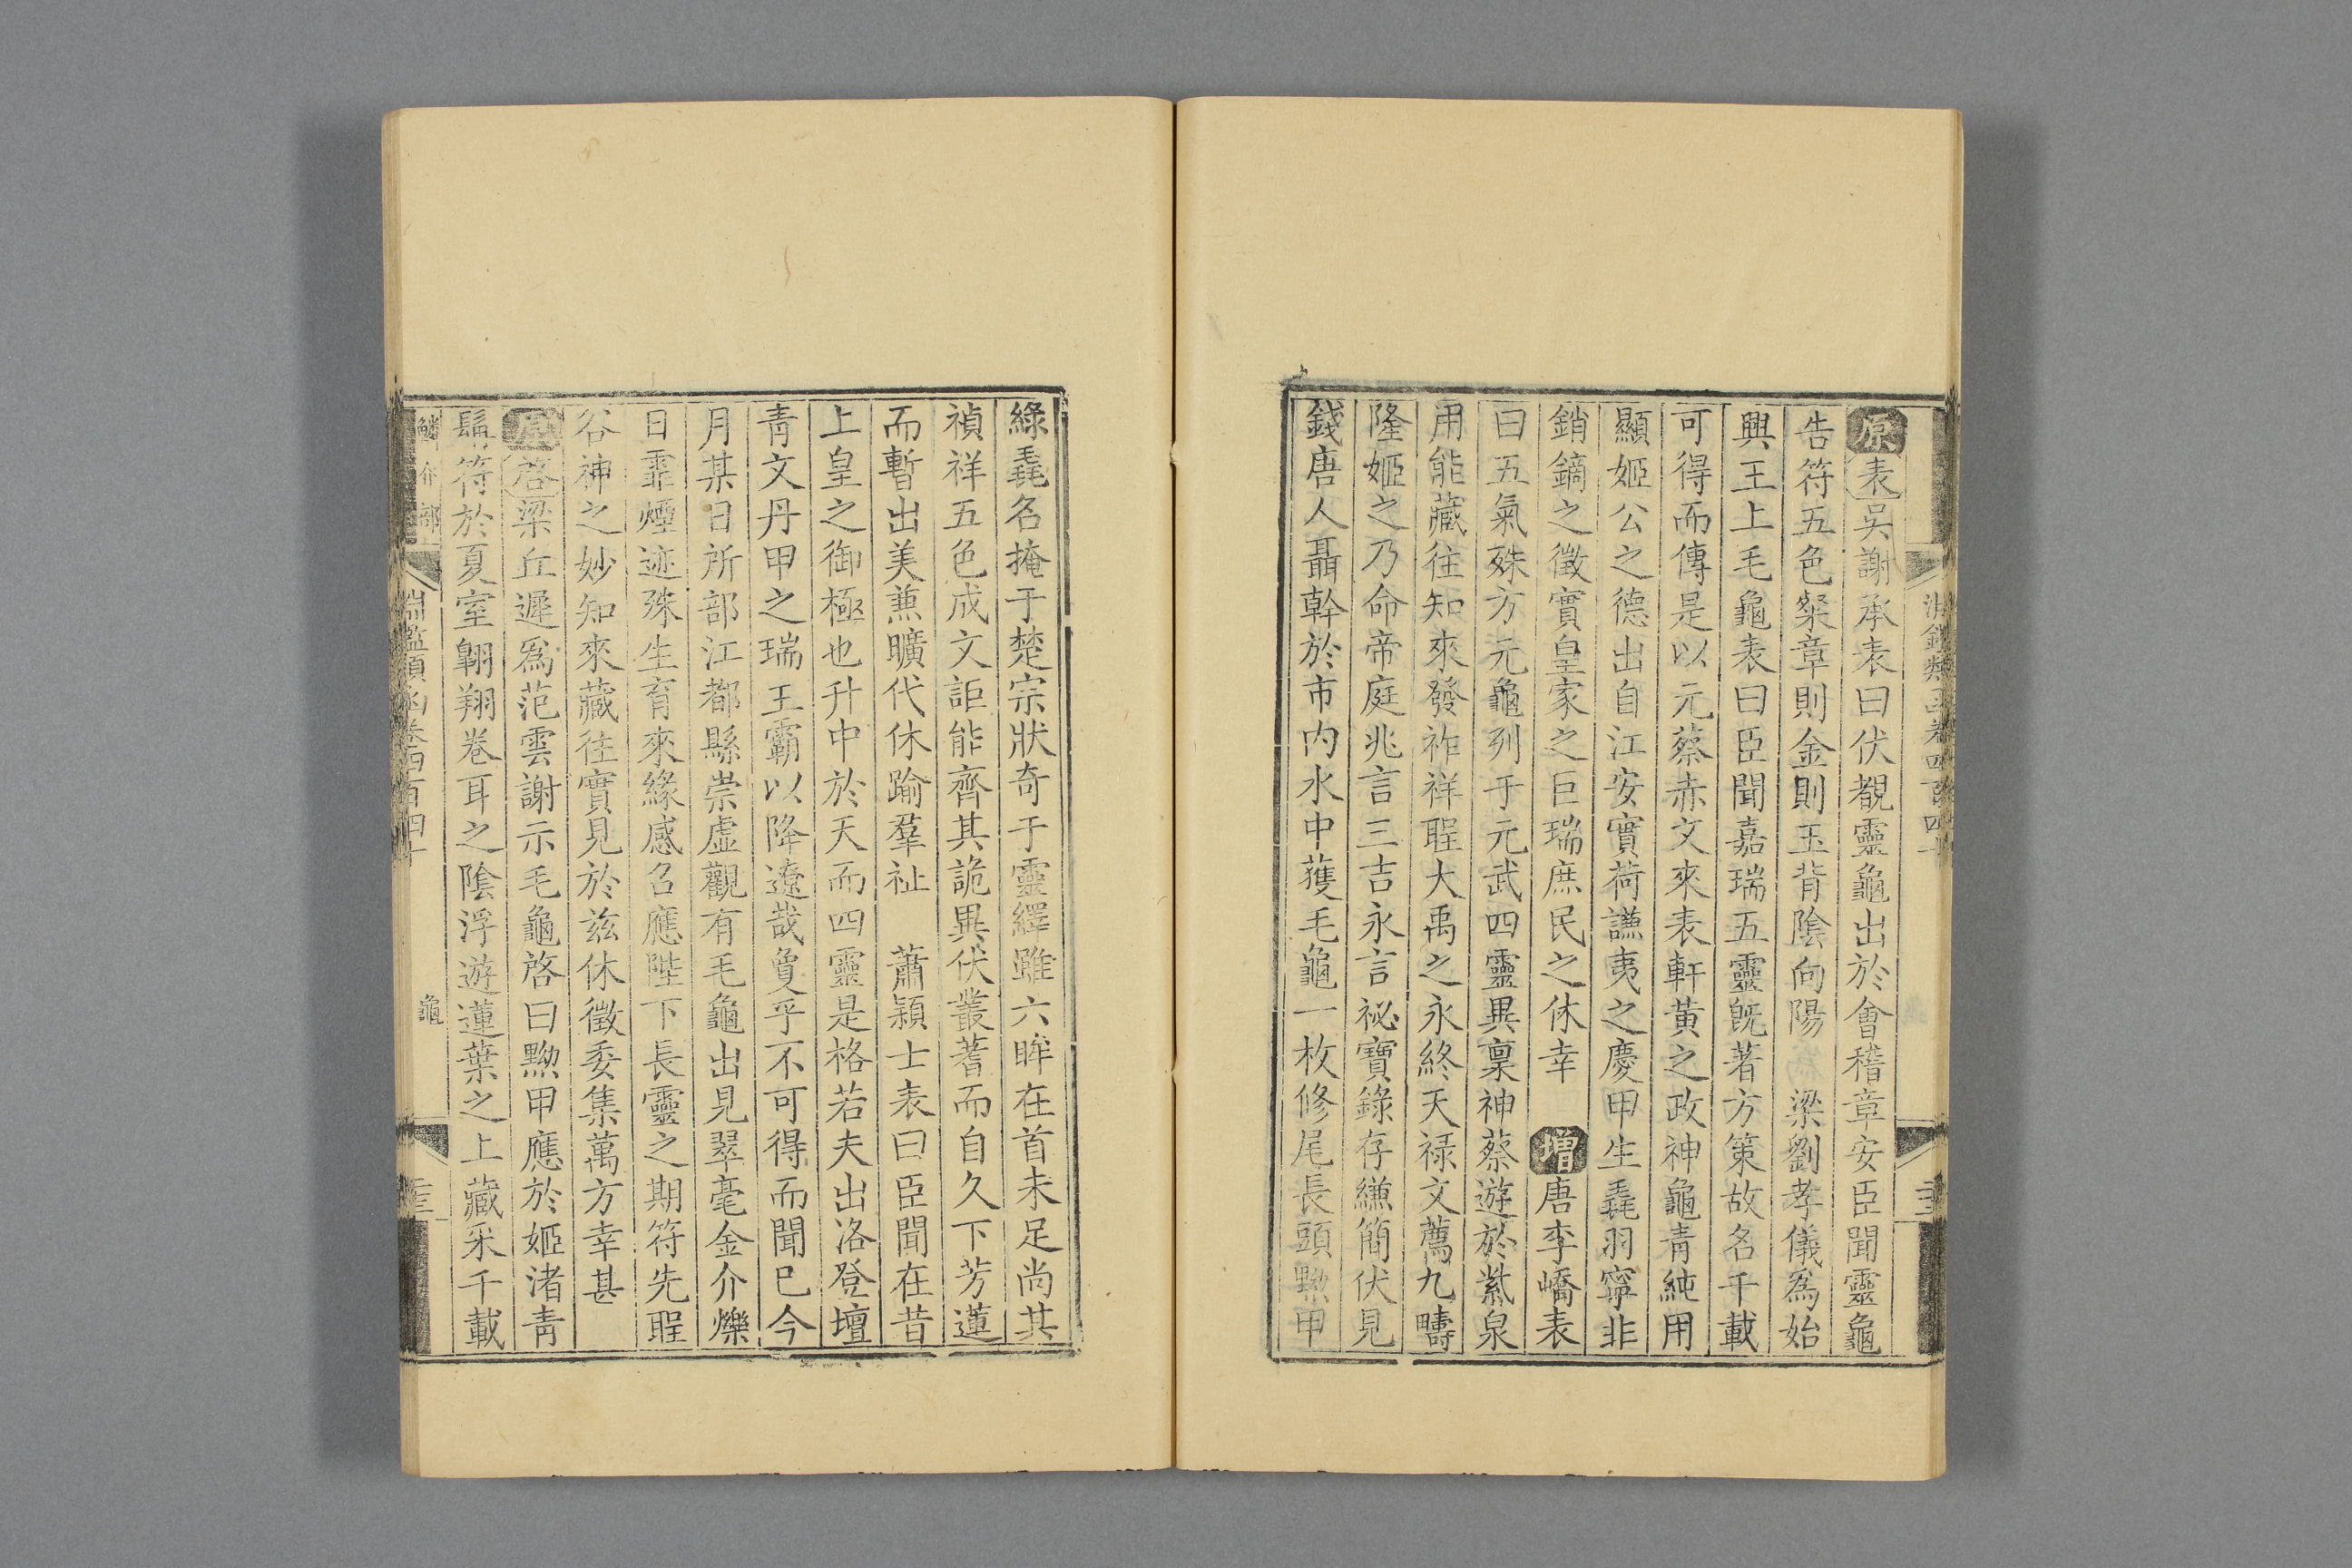 原表吳謝承表曰伏覩靈龜出於會稽章安臣聞靈龜
告符五色粲章則金則玉背陰向陽　梁劉孝儀為始
興王上毛龜表曰臣聞嘉瑞五靈旣著方策故名千載
可得而傳是以元蔡赤文來表軒黃之政神龜青純用
顯姬公之德出自江安實荷謙夷之慶甲生毳羽寧非
銷鏑之徵實皇家之巨瑞庶民之休幸　增唐李嶠表
曰五氣殊方元龜列于元武四靈異稟神蔡遊於紫泉
用能藏往知來發祚祥聖大禹之永終天祿文薦九疇
隆姬之乃命帝庭兆言三吉永言祕寶錄存縑簡伏見
錢唐人聶幹於市內水中獲毛龜一枚修尾長頭黝甲
綠毳名掩于楚宗狀奇于靈繹雖六眸在首未足尚其
禎祥五色成文詎能齊其詭異伏叢蓍而自久下芳蓮
而暫出美兼曠代休踰羣祉　蕭穎士表曰臣聞在昔
上皇之御極也升中於天而四靈是格若夫出洛登壇
青文丹甲之瑞王霸以降遼哉敻乎不可得而聞已今
月某日所部江都縣崇虛觀有毛龜出見翠毫金介爍
日霏煙迹殊生育來緣感召應陛下長靈之期符先聖
谷神之妙知來藏往實見於茲休徵委集萬方幸甚
原啓梁丘遲爲范雲謝示毛龜啓曰黝甲應於姬渚青
髥符於夏室翺翔卷耳之陰浮遊蓮葉之上藏采千載
鱗介部
淵鑑類函卷四百四十
龜